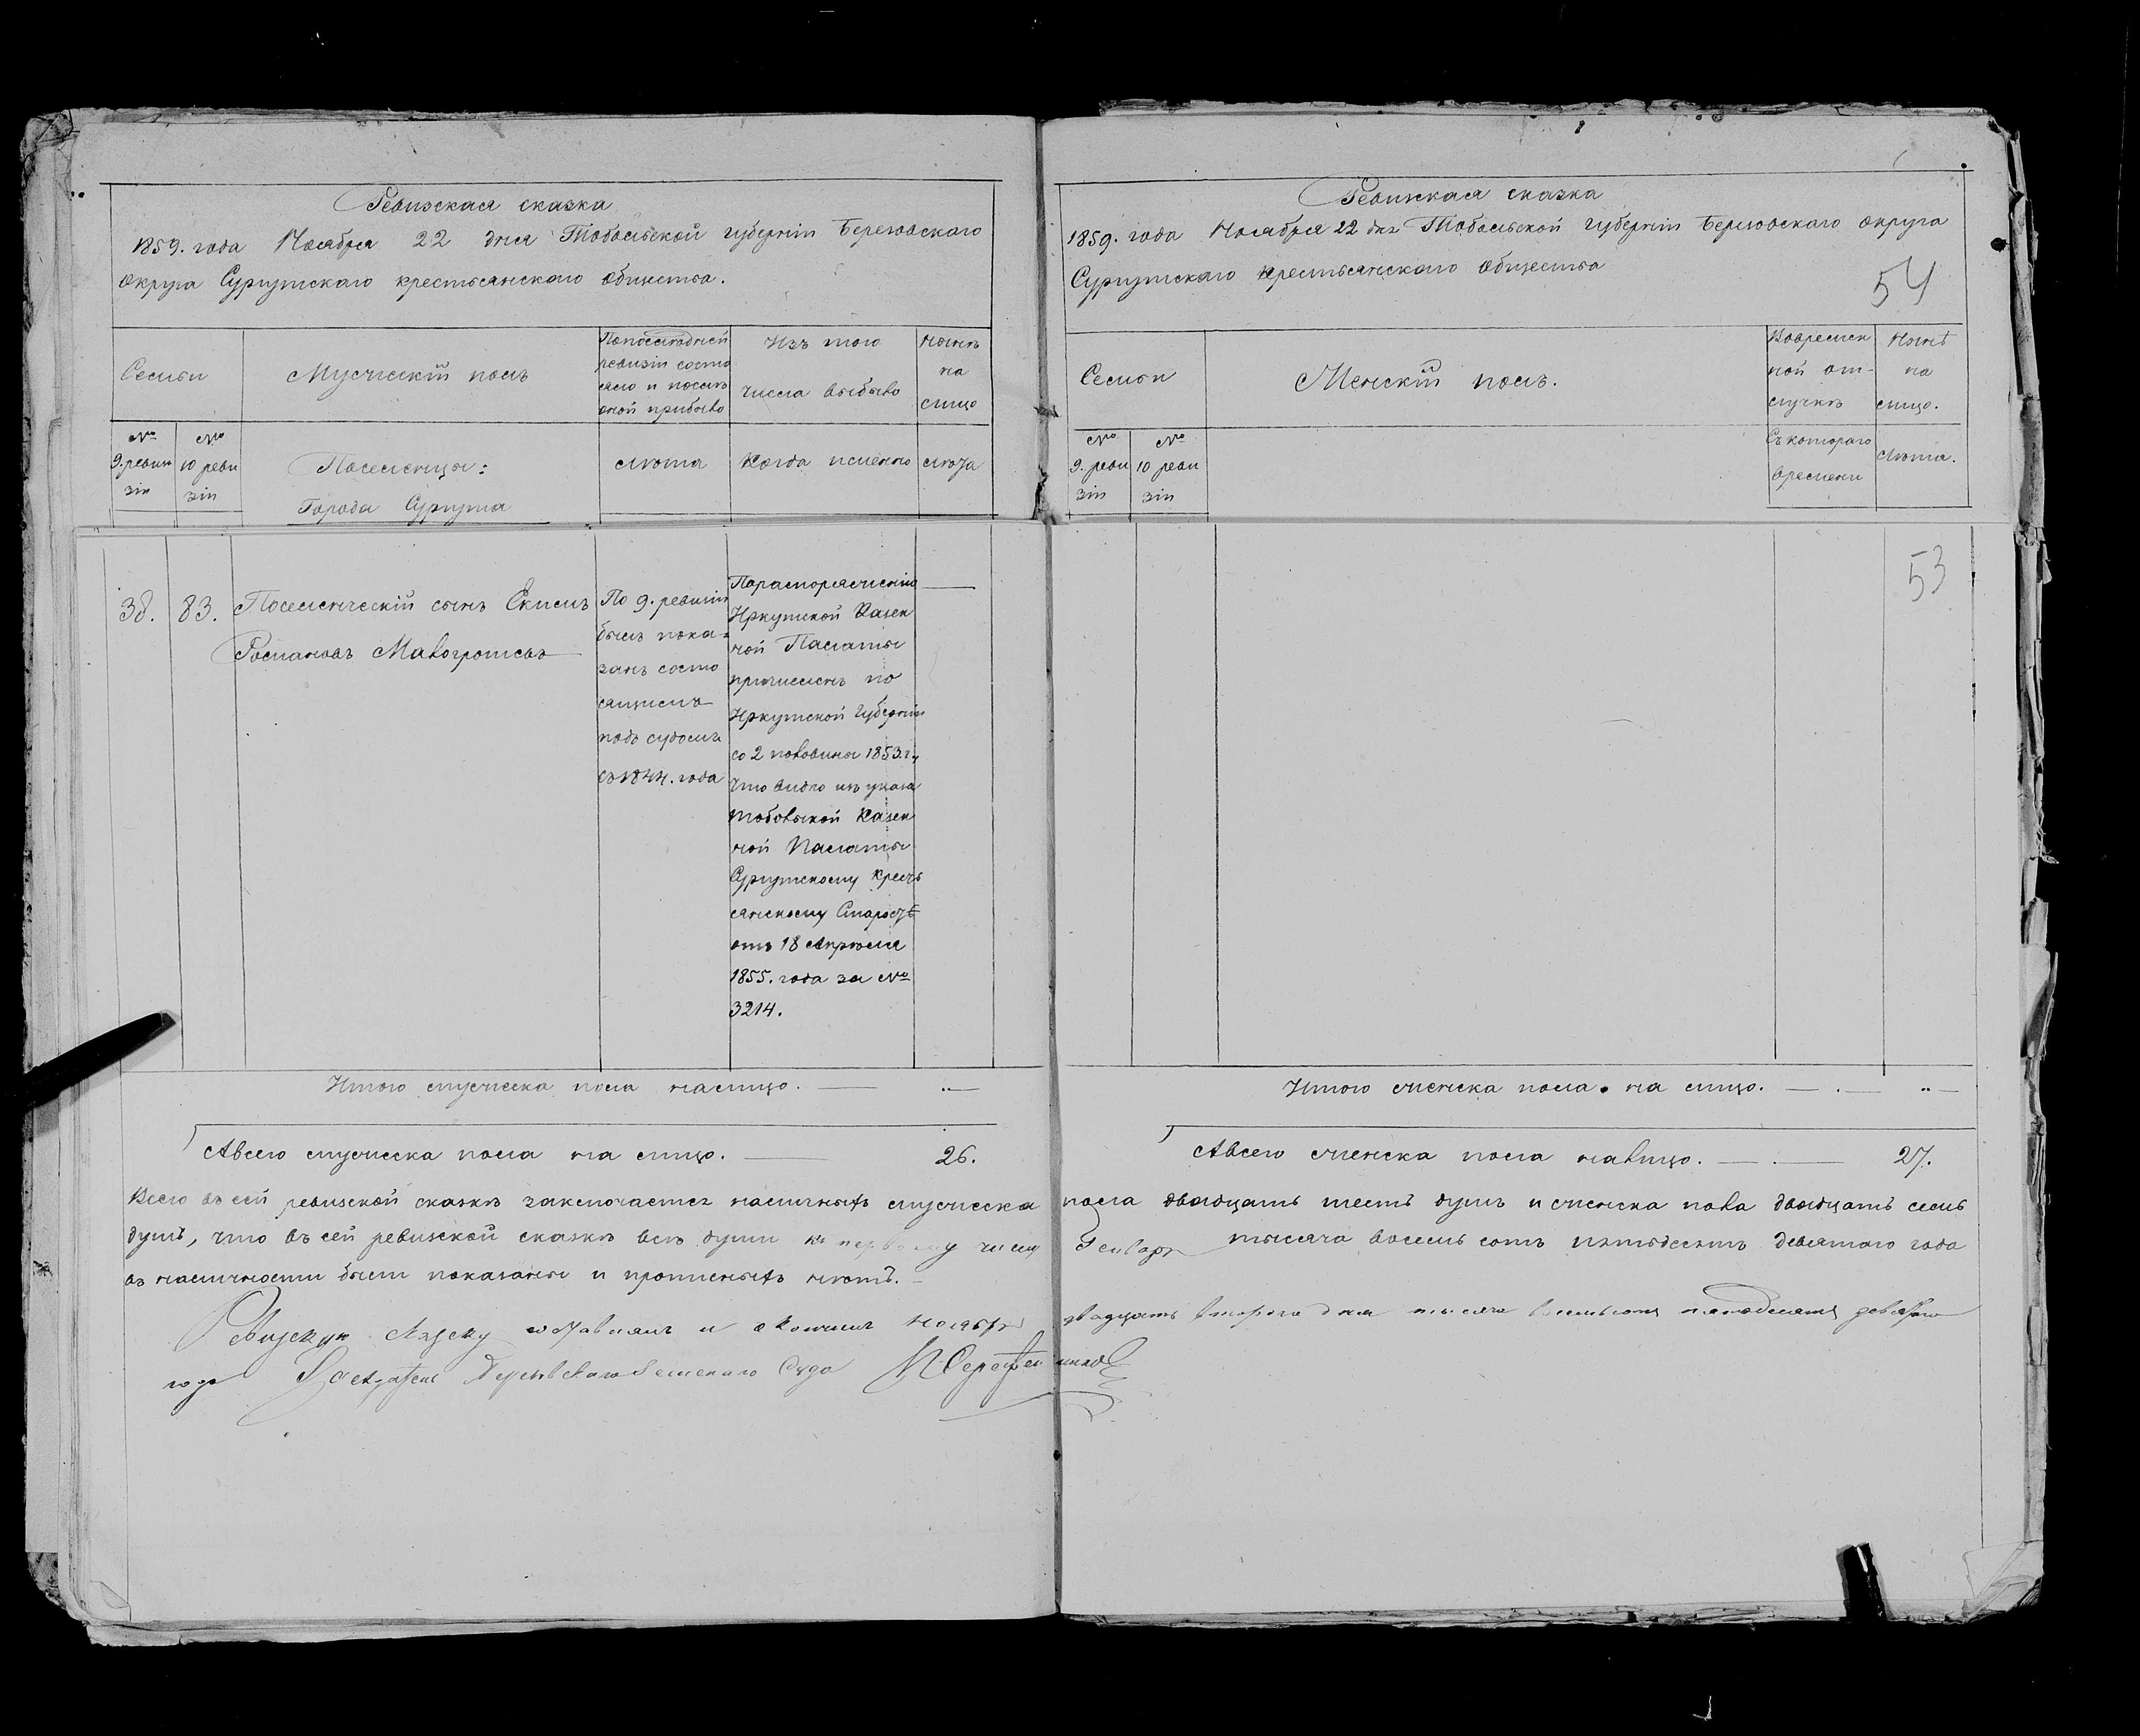 Ревизская сказка
1859. года Ноября 22 дня Тобольской губерніи Березовскаго
округа Сургутскаго крестьянскаго общества.
Семьи
Мужескій полъ
Попоследней
ревизіи состо
яло и после
оной прибыло
Изъ того
числа выбыло
Ныне
на
лицо
№
9. ревизіи
№
10 ревизіи
Поселенцы:
Города Сургута
лета
Когда именно
лета
38.
83.
Поселенческій сынъ Екимъ
Романовъ
По 9. ревизіи
былъ пока=
занъ состо
ящимъ
подъ судомъ
съ 1844. года
Пораспоряженію
Иркутской Казен
ной Палаты
причисленъ по
Иркутской Губерніи
со 2 половины 1853. г.,
Что видно изъ указа
Тобольской Казен
ной Палаты
Сургутскому Кресть
янскому Старостѣ
отъ 18 Апреля
1855. года за №
3214.
Итого мужеска пола налицо. — „—
Авсего мужеска пола на лицо. — 26.
Ревизская сказка
1859. года Ноября 22 дня Тобольской губерніи Березовскаго округа
Сургутскаго крестьянскаго общества
54
Семьи
Женскій полъ.
Вовремен
ной от-
лучке
Нынѣ
на
лицо.
№
9. ревизіи
№
10 ревизіи
Съкотораго
времени
Лета.
53
Итого женска пола на лицо. — . — „ —
Авсего женска пола налицо. — . — 27.
Всего въ сей ревизской сказке заключается наличныхъ мужеска пола двадцать шесть душъ и женска пола двадцать семь
душъ, что въ сей ревизской сказке все души къ первому числу Генваря тысяча восемь сотъ пятьдесятъ девятого года
въ наличности были показаны и прописныхъ нетъ.
Ревизскую сказку составлялъ и окончилъ Ноября двадцать втораго дня тысяча восемьсотъ пятьдесятъ девятого
года Заседатель Березовскаго Земскаго Суда